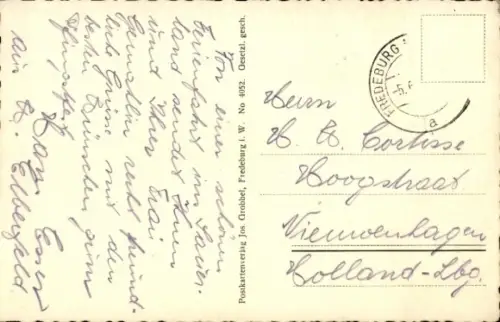 Von einer schönen
Ferienfahrt im Sauer-
land sendet Ihnen
und Ihrer Frau
Gemahlin recht freund-
liche Grüsse mit den
besten Wünschen zum
Pfingstfest
Hans Esser
aus W. Elberfeld
Postkartenverlag Jos. Grobbel, Fredeburg i. W. No 4052. Gesetzl. gesch.
FREDEBURG
a
Herrn
H. H. Cortisse
Hoogstraat
Nieuwenhagen
Holland-Lbg.